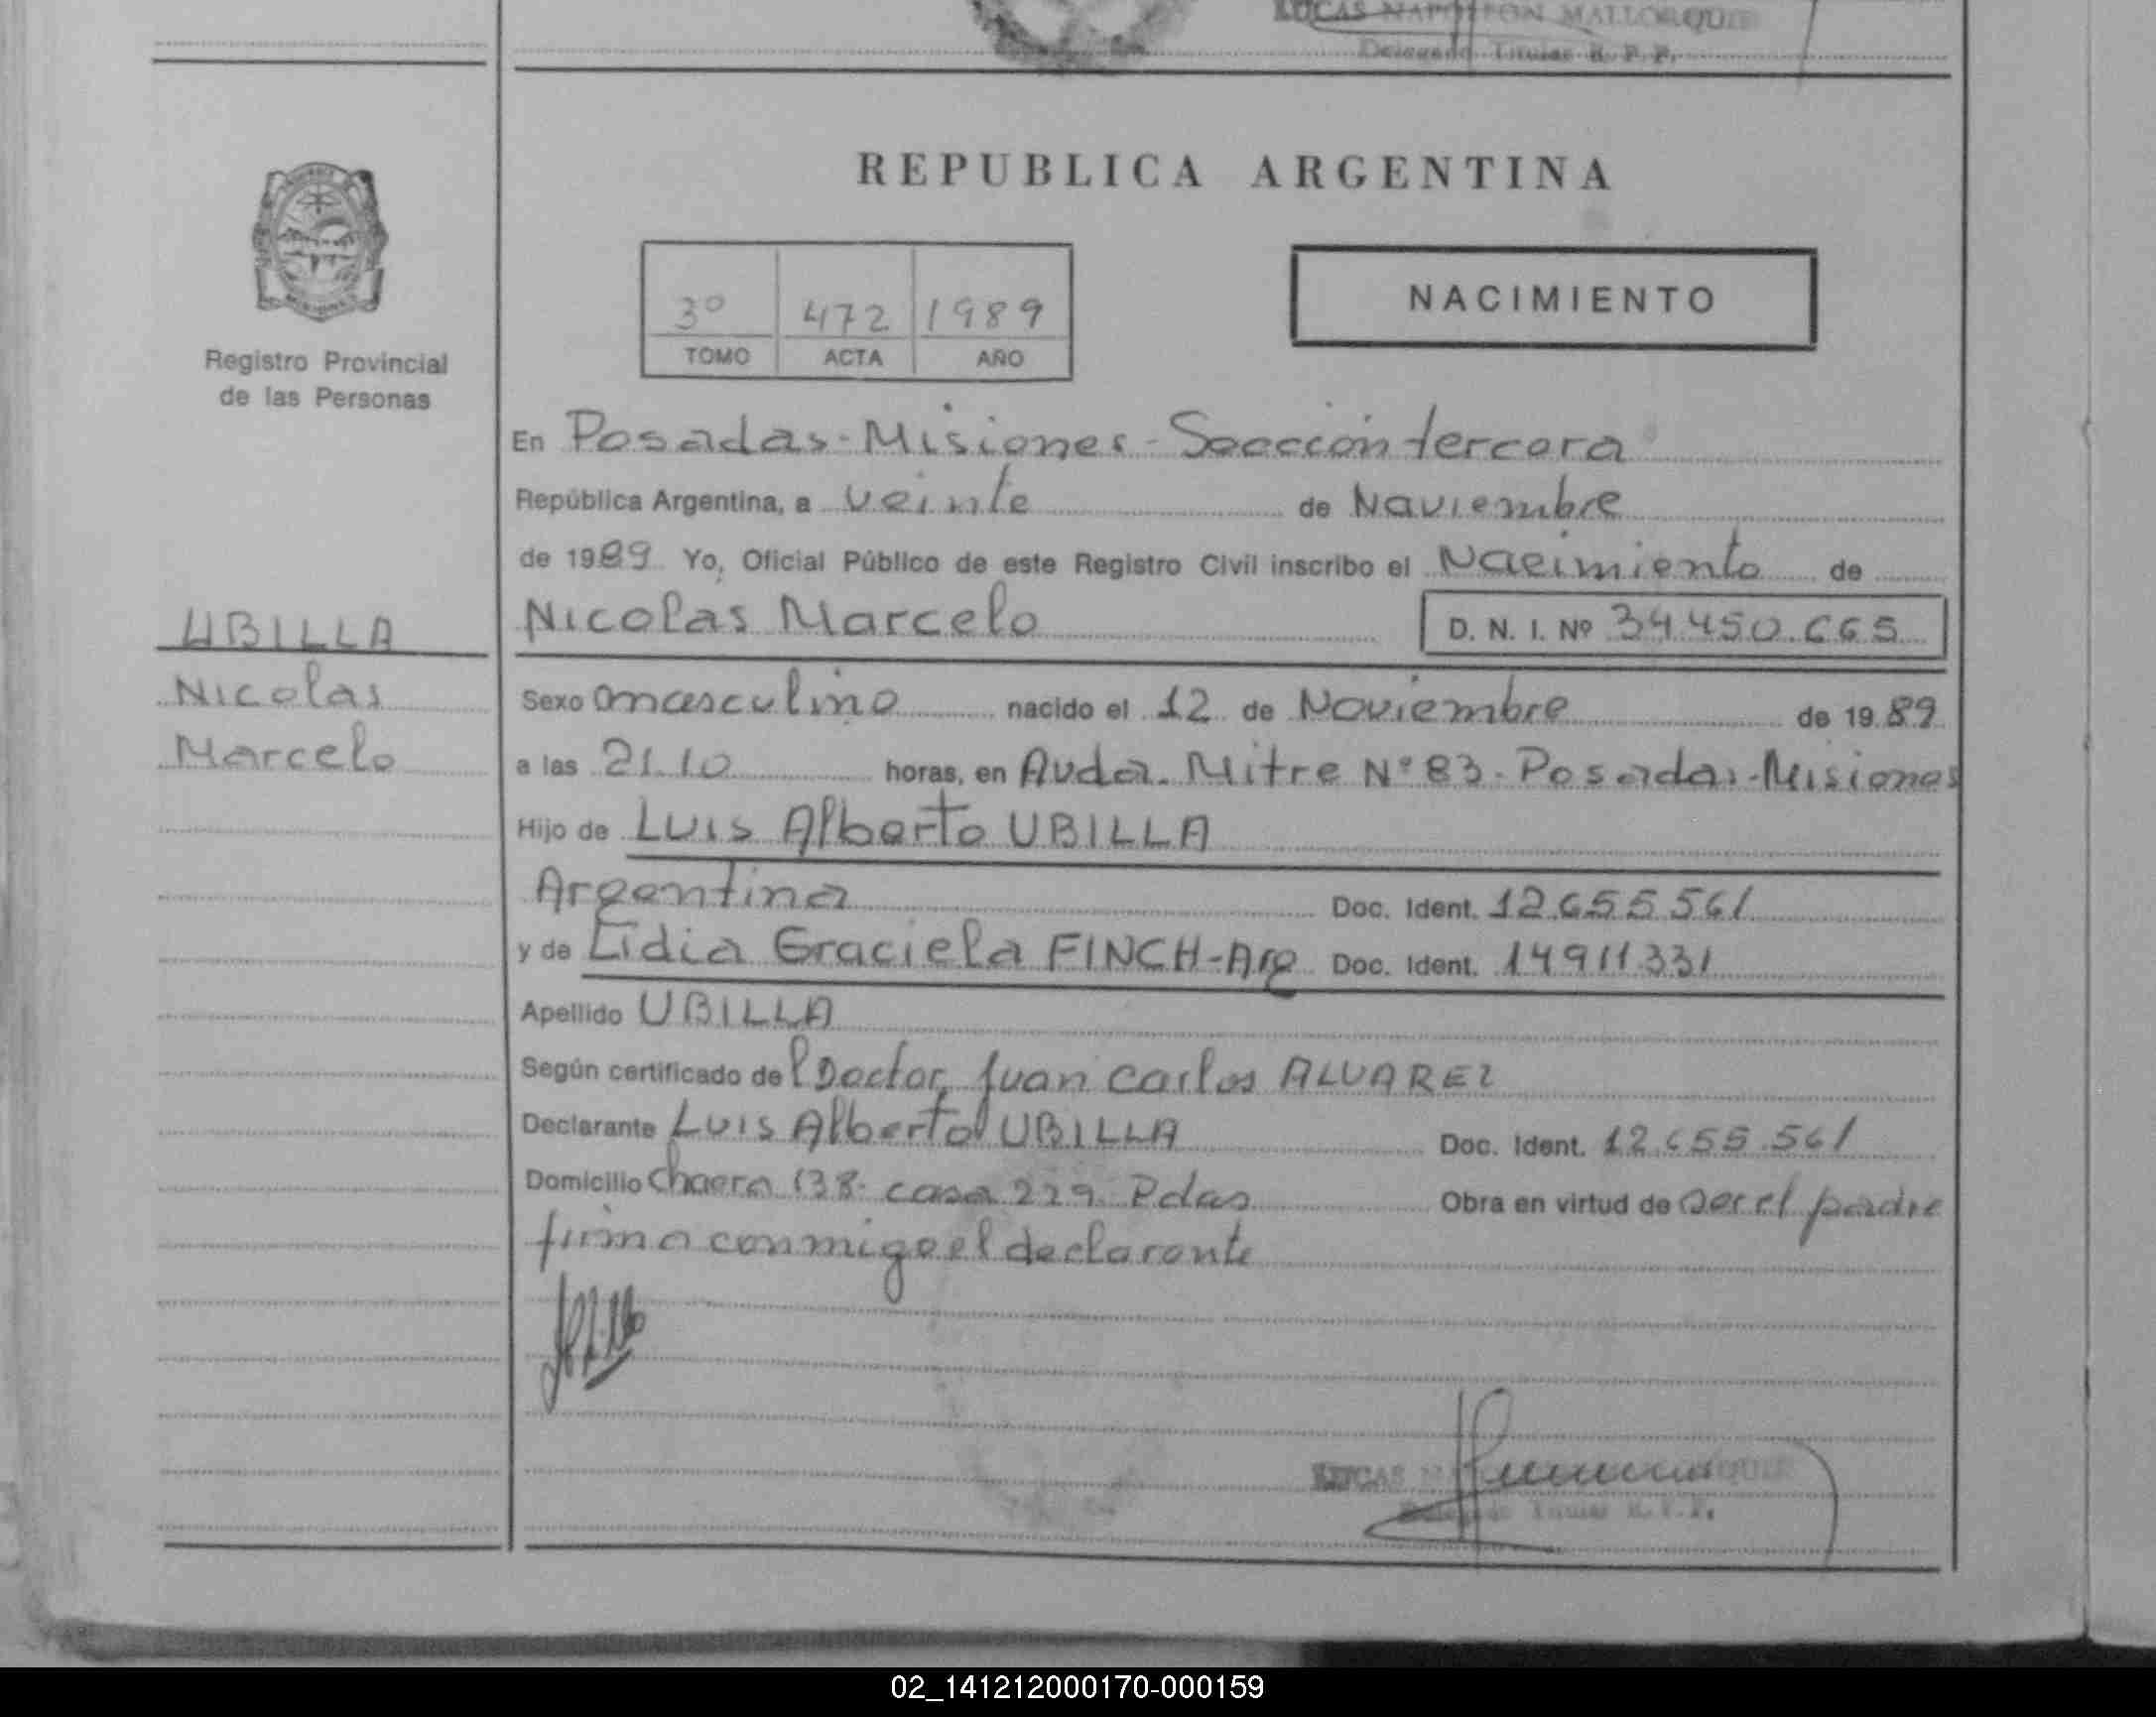 LUCAS NAPOLEON MALLORQUIN
Delegado Titular R. P. P.
REPUBLICA ARGENTINA
Registro Provincial
de las Personas
3º 472 1989
TOMO ACTA AÑO
NACIMIENTO
En Posadas-Misiones-Sección tercera
República Argentina, a veinte de Noviembre
de 1989 Yo, Oficial Público de este Registro Civil inscribo el Nacimiento de
UBILLA
Nicolas
Marcelo
Nicolas Marcelo D. N. I. Nº 34.450.665
Sexo masculino nacido el 12 de Noviembre de 1989
a las 21.10 horas, en Avda. Mitre Nº 83-Posadas-Misiones
Hijo de Luis Alberto UBILLA
Argentina Doc. Ident. 12.655.561
y de Lidia Graciela FINCH-Arg Doc. Ident. 14911331
Apellido UBILLA
Según certificado del Doctor Juan Carlos ALVAREZ
Declarante Luis Alberto UBILLA Doc. Ident. 12.655.561
Domicilio Chacra 138-casa 229 Pdas Obra en virtud de ser el padre
firma conmigo el declarante
LUCAS
Titular R. P. P.
02_141212000170-000159